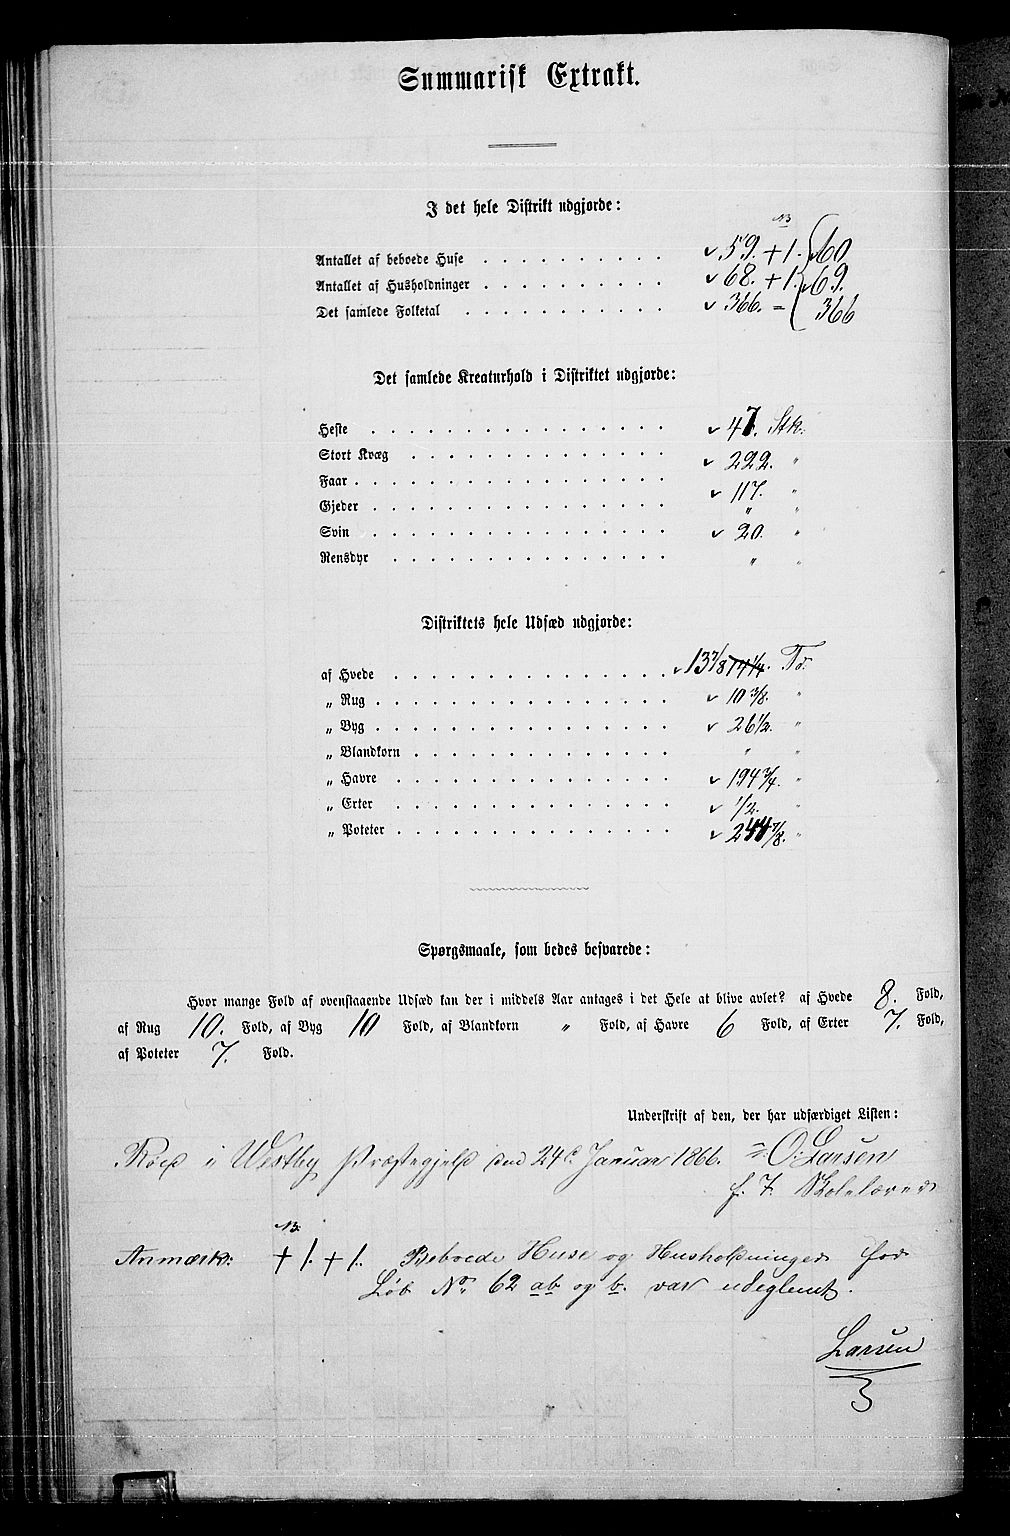 Summarisk Extrakt.
I det hele Distrikt udgjorde:
NB
Antallet af beboede Huse 59. + 1. 60
Antallet af Husholdninger 68. + 1. 69.
Det samlede Folketal 366. = 366
Det samlede Kreaturhold i Distriktet udgjorde:
Heste 47. Stk.
Stort Kvæg 222. "
Faar 117. "
Gjeder " "
Svin 20. "
Rensdyr " "
Distriktets hele Udsæd udgjorde:
af Hvede 13 7/8 14 1/4. Tr.
„ Rug 10 3/8. "
„ Byg 26 1/2. "
„ Blandkorn " "
„ Havre 194 3/4. "
„ Erter 1/2. "
„ Poteter 244 7/8. "
Spørgsmaale, som bedes besvarede:
Hvor mange Fold af ovenstaaende Udsæd kan der i middels Aar antages i det Hele at blive avlet? af Hvede 8. Fold,
af Rug 10. Fold, af Byg 10 Fold, af Blandkorn " Fold, af Havre 6 Fold, af Erter 7. Fold,
af Poteter 7. Fold.
Underskrift af den, der har udfærdiget Listen:
i Westby Præstegjeld den 24de Januar 1866. O. Larsen
f. T. Skolelærer
NB.
Anmærk: + 1. + 1. Beboede Huse og Husholdninger for
Løb No 62 ab og b. var udeglemt.
Larsen